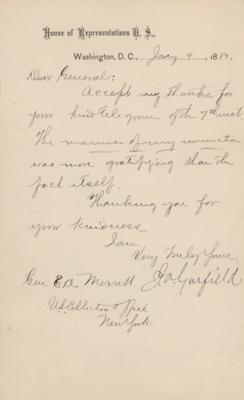 House of Representatives U. S.,
Washington, D. C., Jany 9, 1880.
Dear General:
Accept my thanks for
your kind telegram of the 7th inst.
The manner of my nomination
was more gratifying than the
fact itself.
Thanking you for
your kindness
I am
Very truly yours
J. A. Garfield
Gen E. A. Merritt
U.S. Collector's Office
New York